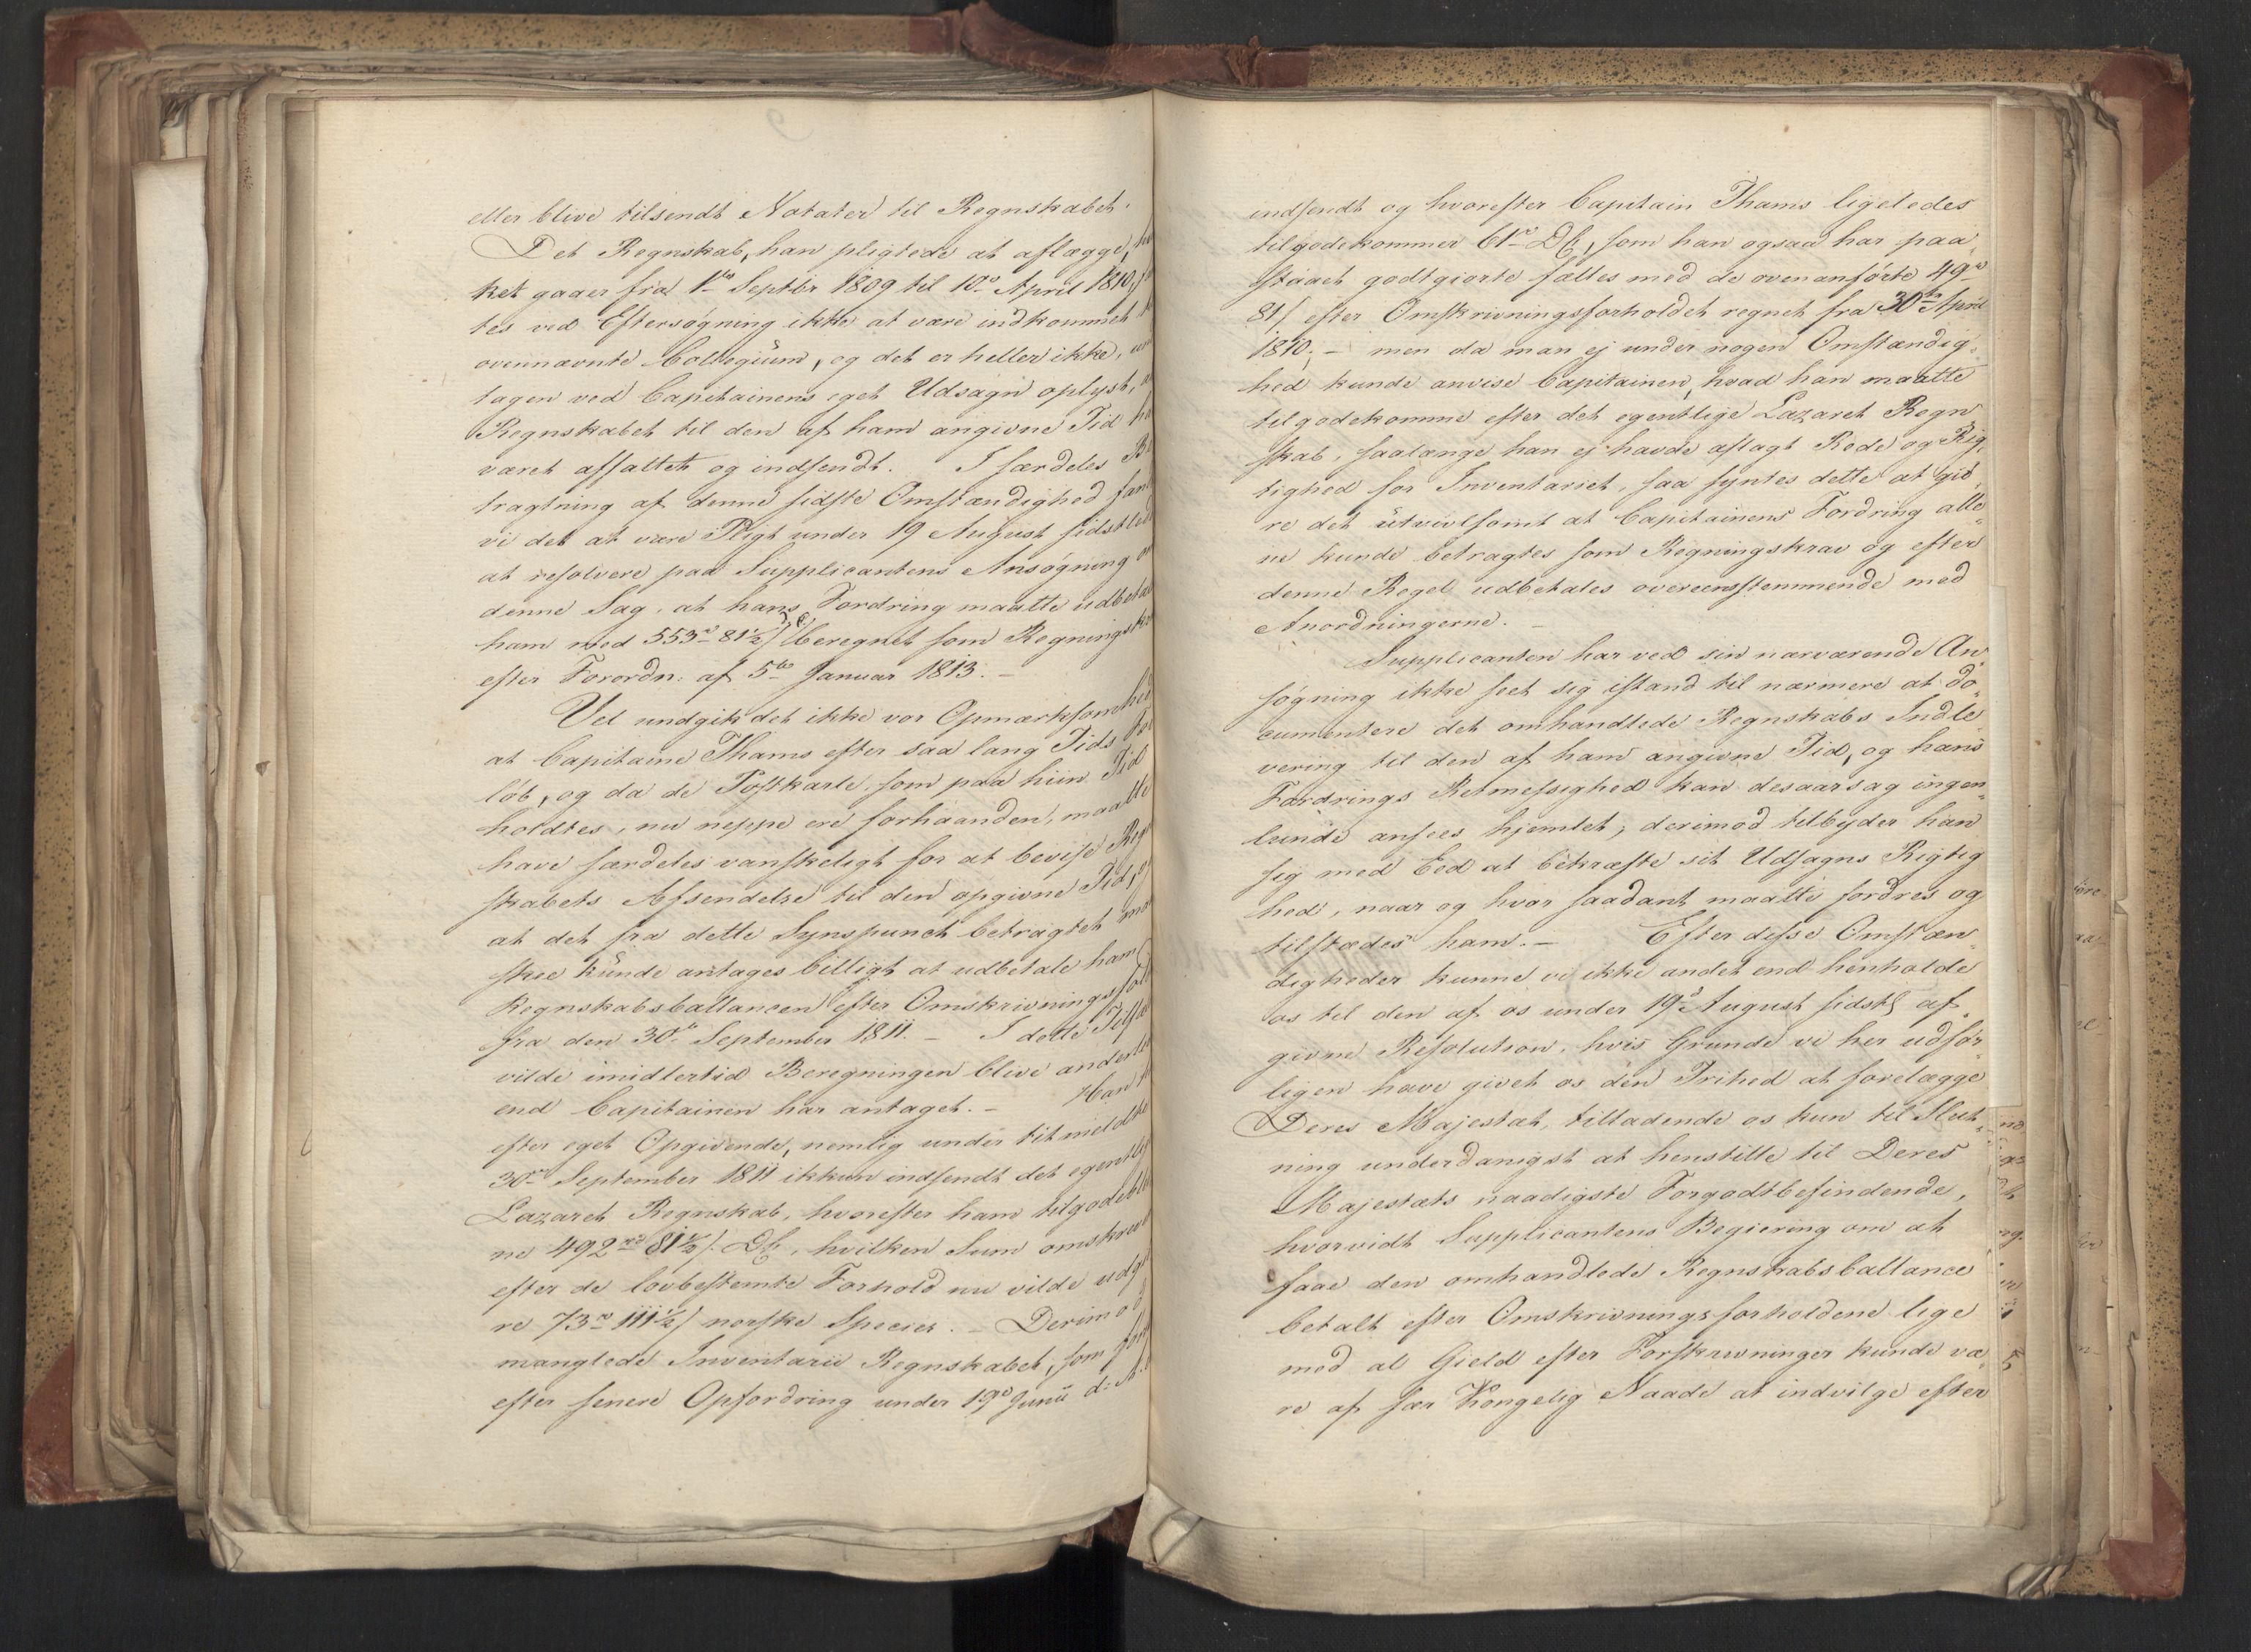 eller blive tilsendt Notater til Regnskabet.
Det Regnskab, han pligtede at aflægge,
ket gaaer fra 1te Septbr 1809 til 10de April 1810,
tes ved Eftersøgning ikke at være indkommet
ovennævnte Collegium, og det er heller ikke,
tagen ved Capitainens eget Udsagn oplyst,
Regnskabet til den af ham angivne Tid
været affattet og indsendt. I særdeles Be
tragtning af denne sidste Omstændighed fan
vi det at være Pligt under 19 August sidstled
at resolvere paa Supplicantens Ansøgning
denne Sag, at hans Fordring maatte udbetal
ham med 553rd 81½s beregnet som Regningskr
efter Forordn: af 5te Januar 1813. –
Vel undgik det ikke vor Opmærksomhed
at Capitaine Thams efter saa lang Tids For
løb, og da de Postkarte, som paa hiin Tid
holdtes, nu neppe ere forhaanden, maatte
have særdeles vanskeligt for at bevise Reg
skabets Afsendelse til den opgivne Tid,
at det fra dette Synspunct betragtet maa
skee kunde antages billigt at udbetale ham
Regnskabsballancen efter Omskrivningsforh
fra den 30te September 1811. – I dette Tilfæ
vilde imidlertid Beregningen blive anderle
end Capitainen har antaget. – Han
efter eget Opgivende, nemlig under titmeldte
30te September 1811 ikkun indsendt det egentlig
Lazaret Regnskab, hvorefter ham tilgodeble
ne 492rd 81½s. DC, hvilken Sum omskrev
efter de lovbestemte Forhold nu vilde udgi
re 73rd 111½s norske Species. – Derimod
manglede Inventarii Regnskabet, som
efter senere Opfordring under 19de Junii d: A.
indsendt og hvorefter Capitain Thams ligeledes
tilgodekommer 61rd DC, som han ogsaa har paa„
staaet godtgiorte fælles med de ovenanførte 49rd
81s efter Omskrivningsforholdet regnet fra 30te April
1810; – men da man ej under nogen Omstændig„
hed kunde anvise Capitainen, hvad han maatte
tilgodekomme efter det egentlige Lazaret Regn
skab, saalænge han ej havde aflagt Rede og Rig„
tighed for Inventariet, saa syntes dette at giø„
re det utvivlsomt at Capitainens Fordring alle„
ne kunde betragtes som Regningskrav og efter
denne Regel udbetales overeensstemmende med
Anordningerne. –
Supplicanten har ved sin nærværende An„
søgning ikke seet sig istand til nærmere at do„
cumentere det omhandlede Regnskabs Indle
vering til den af ham angivne Tid, og hans
Fordrings Retmessighed kan desaarsag ingen„
lunde ansees hjemlet; derimod tilbyder han
sig med Eed at bekræfte sit Udsagns Rigtig
hed, naar og hvor saadant maatte fordres og
tilstædes ham. – Efter disse Omstæn„
digheder kunne vi ikke andet end henholde
os til den af os under 19de August sidstl af„
givne Resolution, hvis Grunde vi her udfør„
ligen have givet os den Frihed at forelægge
Deres Majestæt, tilladende os kun til Slut„
ning underdanigst at henstille til Deres
Majestæts naadigste Forgodtbefindende,
hvorvidt Supplicantens Begiering om at
faae den omhandlede Regnskabsballance
betalt efter Omskrivningsforholdene lige
med al Gield efter Forskrivninger kunde væ„
re af sær Kongelig Naade at indvilge efter